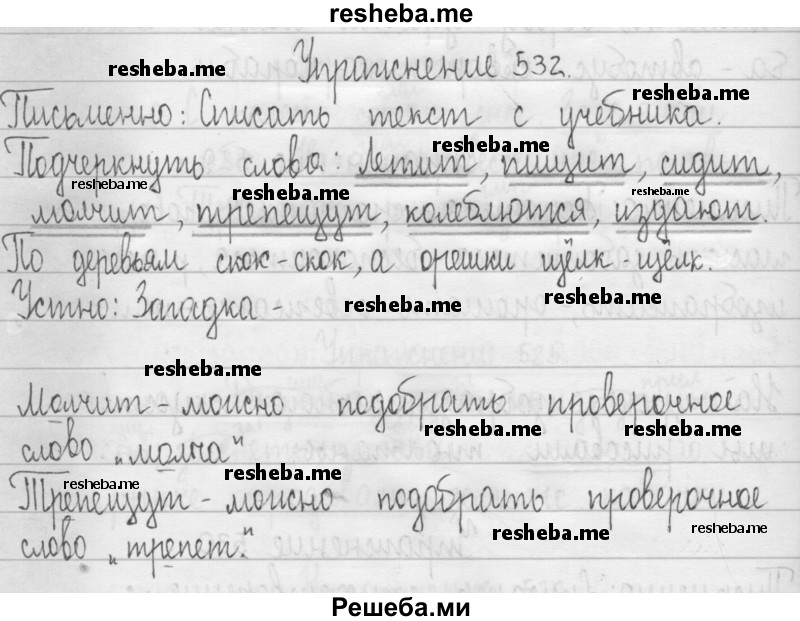 resheba.me
Упражнение 532.
resheba.me
resheba.me
Письменно: Списать текст с учебника.
resheba.me
Подчеркнуть слова: Летит, пищит, сидит,
resheba.me
resheba.me
resheba.me
молчит, трепещут, колеблются, издают.
По деревьям скок-скок, а орешки щёлк-щёлк.
Устно: Загадка -
resheba.me
resheba.me
resheba.me
Молчит - можно подобрать проверочное
resheba.me
resheba.me
слово „молча"
resheba.me
resheba.me
Трепещут - можно подобрать проверочное
resheba.me
resheba.me
слово „трепет."
Решеба.ми